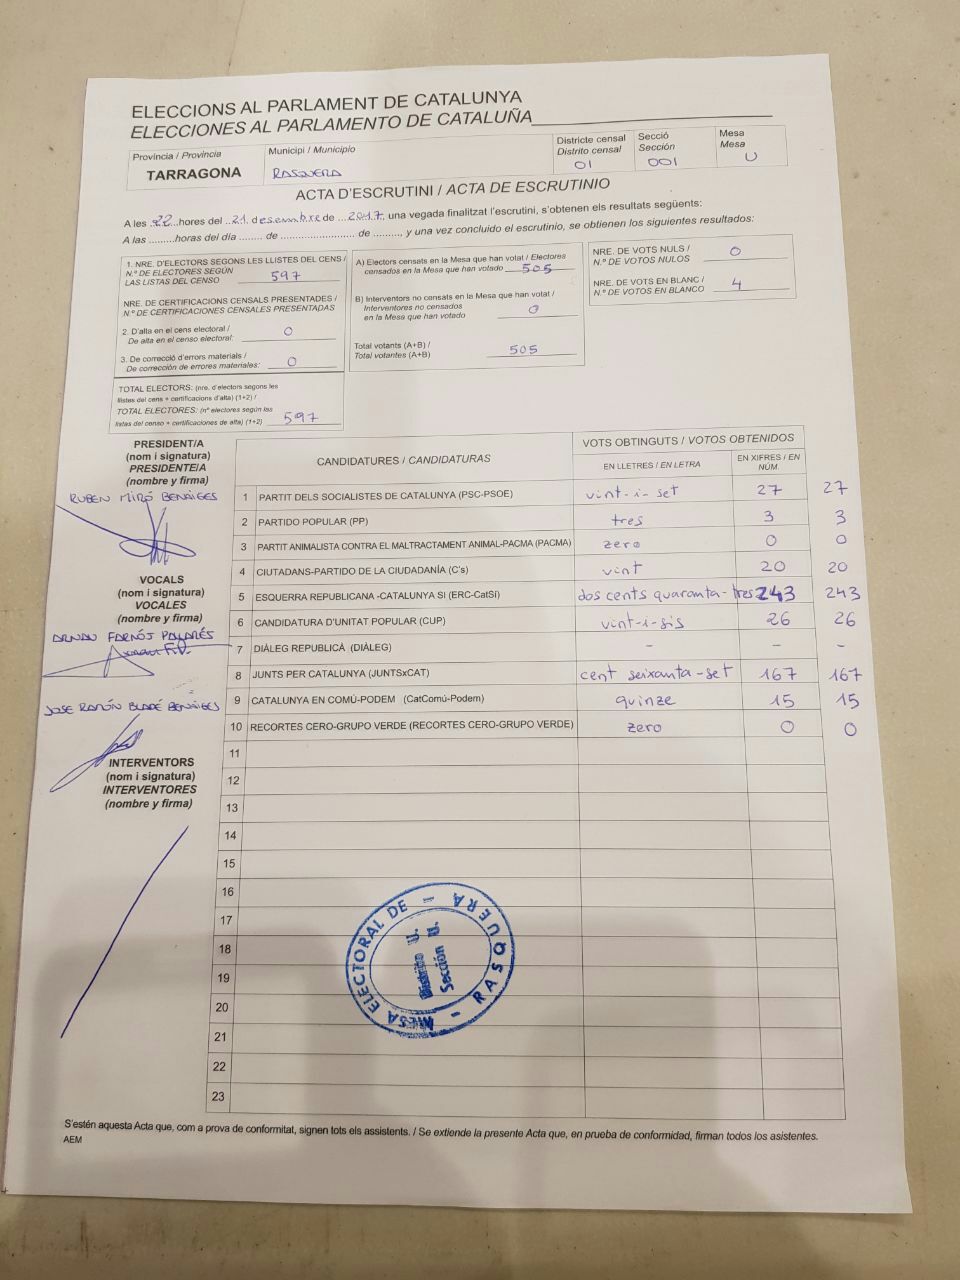 ELECCIONS AL PARLAMENT DE CATALUNYA
ELECCIONES AL PARLAMENTO DE CATALUÑA
Província / Provincia
TARRAGONA
Municipi / Municipio
RASQUERA
Districte censal
Distrito censal
01
Secció
Sección
001
Mesa
Mesa
U
ACTA D'ESCRUTINI / ACTA DE ESCRUTINIO
A les .22...hores del ..21. desembre de ...2017, una vegada finalitzat l'escrutini, s'obtenen els resultats següents:
A las .........horas del día ........ de ........................ de ........, y una vez concluido el escrutinio, se obtienen los siguientes resultados:
1. NRE. D'ELECTORS SEGONS LES LLISTES DEL CENS /
N.º DE ELECTORES SEGÚN
LAS LISTAS DEL CENSO 597
NRE. DE CERTIFICACIONS CENSALS PRESENTADES /
N.º DE CERTIFICACIONES CENSALES PRESENTADAS
2. D'alta en el cens electoral /
De alta en el censo electoral: 0
3. De correcció d'errors materials /
De corrección de errores materiales: 0
TOTAL ELECTORS: (nre. d'electors segons les
llistes del cens + certificacions d'alta) (1+2) /
TOTAL ELECTORES: (nº electores según las
listas del censo + certificaciones de alta) (1+2) 597
A) Electors censats en la Mesa que han votat / Electores
censados en la Mesa que han votado 505
B) Interventors no censats en la Mesa que han votat /
Interventores no censados
en la Mesa que han votado 0
Total votants (A+B) /
Total votantes (A+B) 505
NRE. DE VOTS NULS /
N.º DE VOTOS NULOS 0
NRE. DE VOTS EN BLANC /
N.º DE VOTOS EN BLANCO 4
PRESIDENT/A
(nom i signatura)
PRESIDENTE/A
(nombre y firma)
RUBEN MIRÓ BENAIGES
VOCALS
(nom i signatura)
VOCALES
(nombre y firma)
ARNAU FARNÓS PALLARÉS
JOSE RAMÓN BLADÉ BENAIGES
INTERVENTORS
(nom i signatura)
INTERVENTORES
(nombre y firma)
CANDIDATURES / CANDIDATURAS
VOTS OBTINGUTS / VOTOS OBTENIDOS
EN LLETRES / EN LETRA
EN XIFRES / EN NÚM.
1 PARTIT DELS SOCIALISTES DE CATALUNYA (PSC-PSOE) vint-i-set 27 27
2 PARTIDO POPULAR (PP) tres 3 3
3 PARTIT ANIMALISTA CONTRA EL MALTRACTAMENT ANIMAL-PACMA (PACMA) zero 0 0
4 CIUTADANS-PARTIDO DE LA CIUDADANÍA (C's) vint 20 20
5 ESQUERRA REPUBLICANA -CATALUNYA SI (ERC-CatSI) dos cents quaranta-tres 243 243
6 CANDIDATURA D'UNITAT POPULAR (CUP) vint-i-sis 26 26
7 DIÀLEG REPUBLICÀ (DIÀLEG) - - -
8 JUNTS PER CATALUNYA (JUNTSxCAT) cent seixanta-set 167 167
9 CATALUNYA EN COMÚ-PODEM (CatComú-Podem) quinze 15 15
10 RECORTES CERO-GRUPO VERDE (RECORTES CERO-GRUPO VERDE) zero 0 0
11
12
13
14
15
16
17
18
19
20
21
22
23
MESA ELECTORAL DE - RASQUERA -
Distrito U.
Sección U.
S'estén aquesta Acta que, com a prova de conformitat, signen tots els assistents. / Se extiende la presente Acta que, en prueba de conformidad, firman todos los asistentes.
AEM